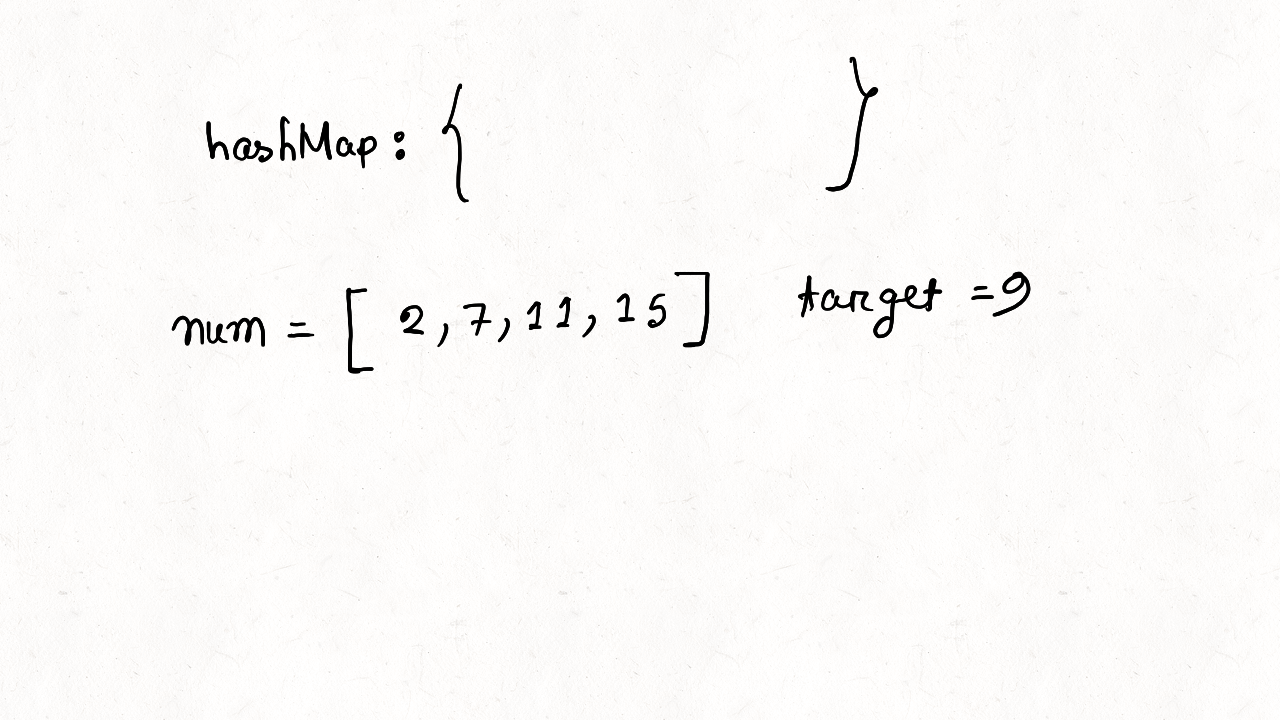 hashMap: { }
num = [ 2, 7, 11, 15 ] target = 9